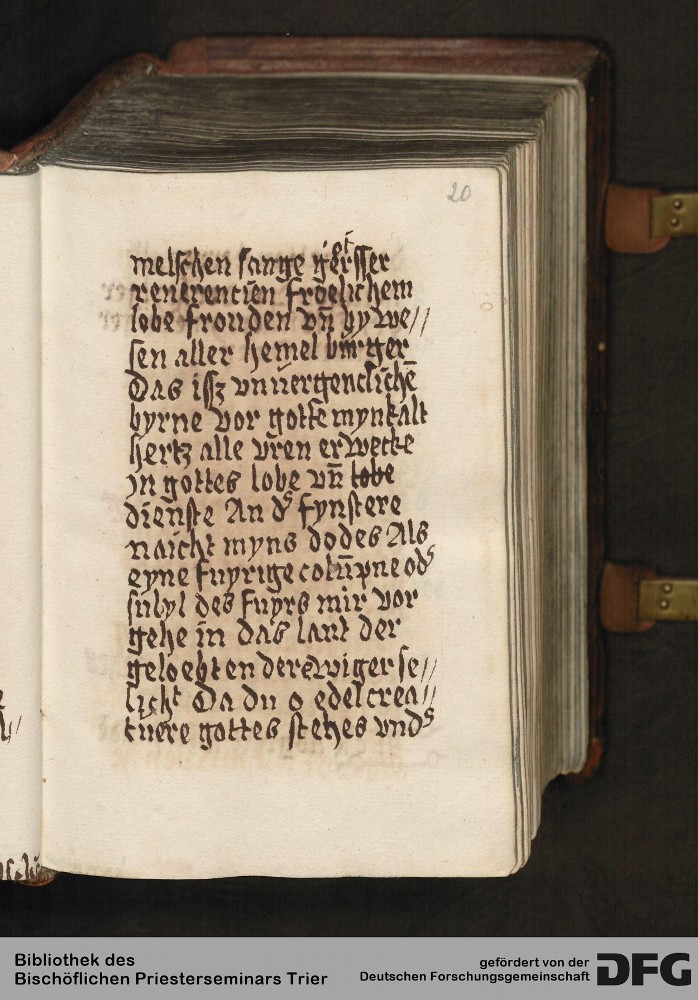 20
melschen sange groesser
reuerencien froelichem
lobe frouden vn̄ by we//
sen aller hemel burger
Das issz vnuergenclichē
byrne vor gotte myn kalt
hertz alle vren erwecke
In gottes lobe vn̄ lobe
dienste An dˢ fynstere
naicht myns dodes Als
eyne fuyrige colūpne odˢ
subyl des fuyrs mir vor
gehe in das lant der
geloebten der ewiger se//
licht Da du o edel crea//
tuere gottes stehes vndˢ
Bibliothek des
Bischöflichen Priesterseminars Trier
gefördert von der
Deutschen Forschungsgemeinschaft
DFG